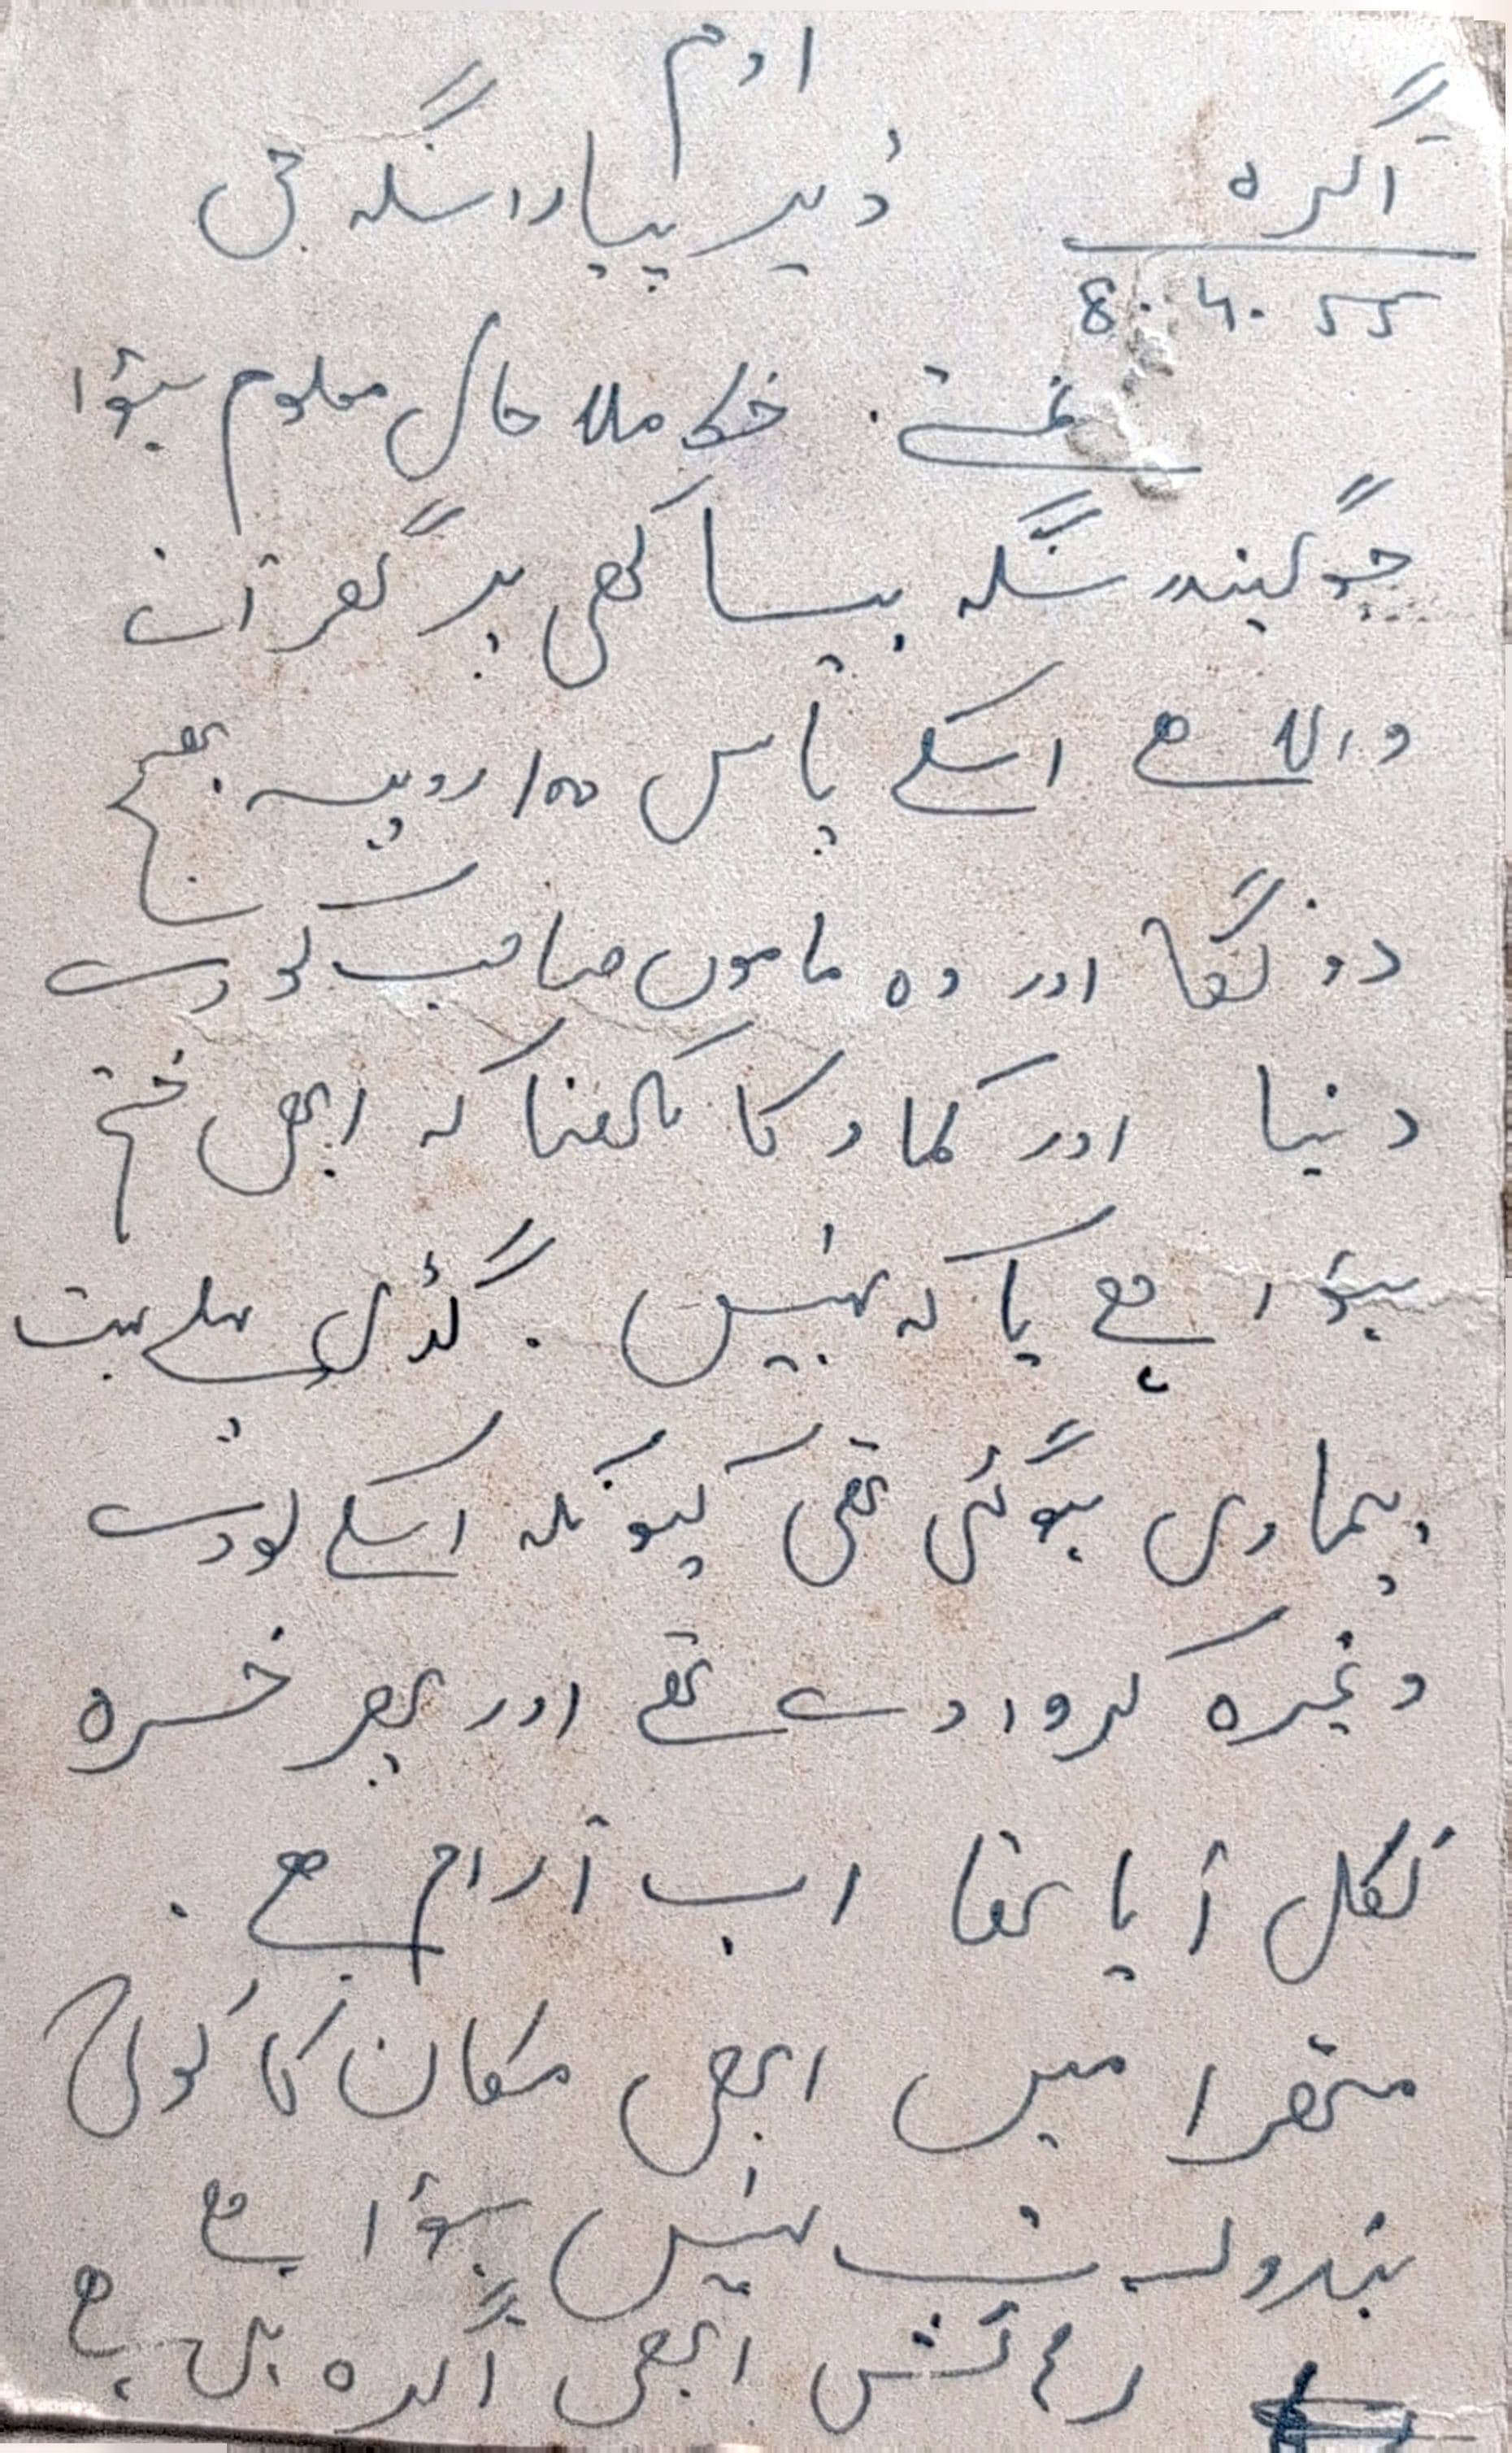 اوم
آگرہ
ڈیر پیارا سنگھ جی
8.4.55
نمستے. خط ملا حال معلوم ہؤا
جوگیندر سنگھ بیساکھی پر گھر آنے
والا ہے اسکے پاس 100/ روپیہ بھیج
دونگا اور وہ ماموں صاحب کو دے
دینا اور کماد کا لکھنا کہ ابھی ختم
ہؤا ہے یا کہ نہیں. گڈی پہلے بہت
بیماری ہوگئی تھی کیونکہ اسکے لودے
وغیرہ کروا دے تھے اور پھر خسرہ
نکل آیا تھا اب آرام ہے.
متھرا میں ابھی مکان کا کوئی
بندوبست نہیں ہؤا ہے
رہائش ابھی آگرہ ہی ہے